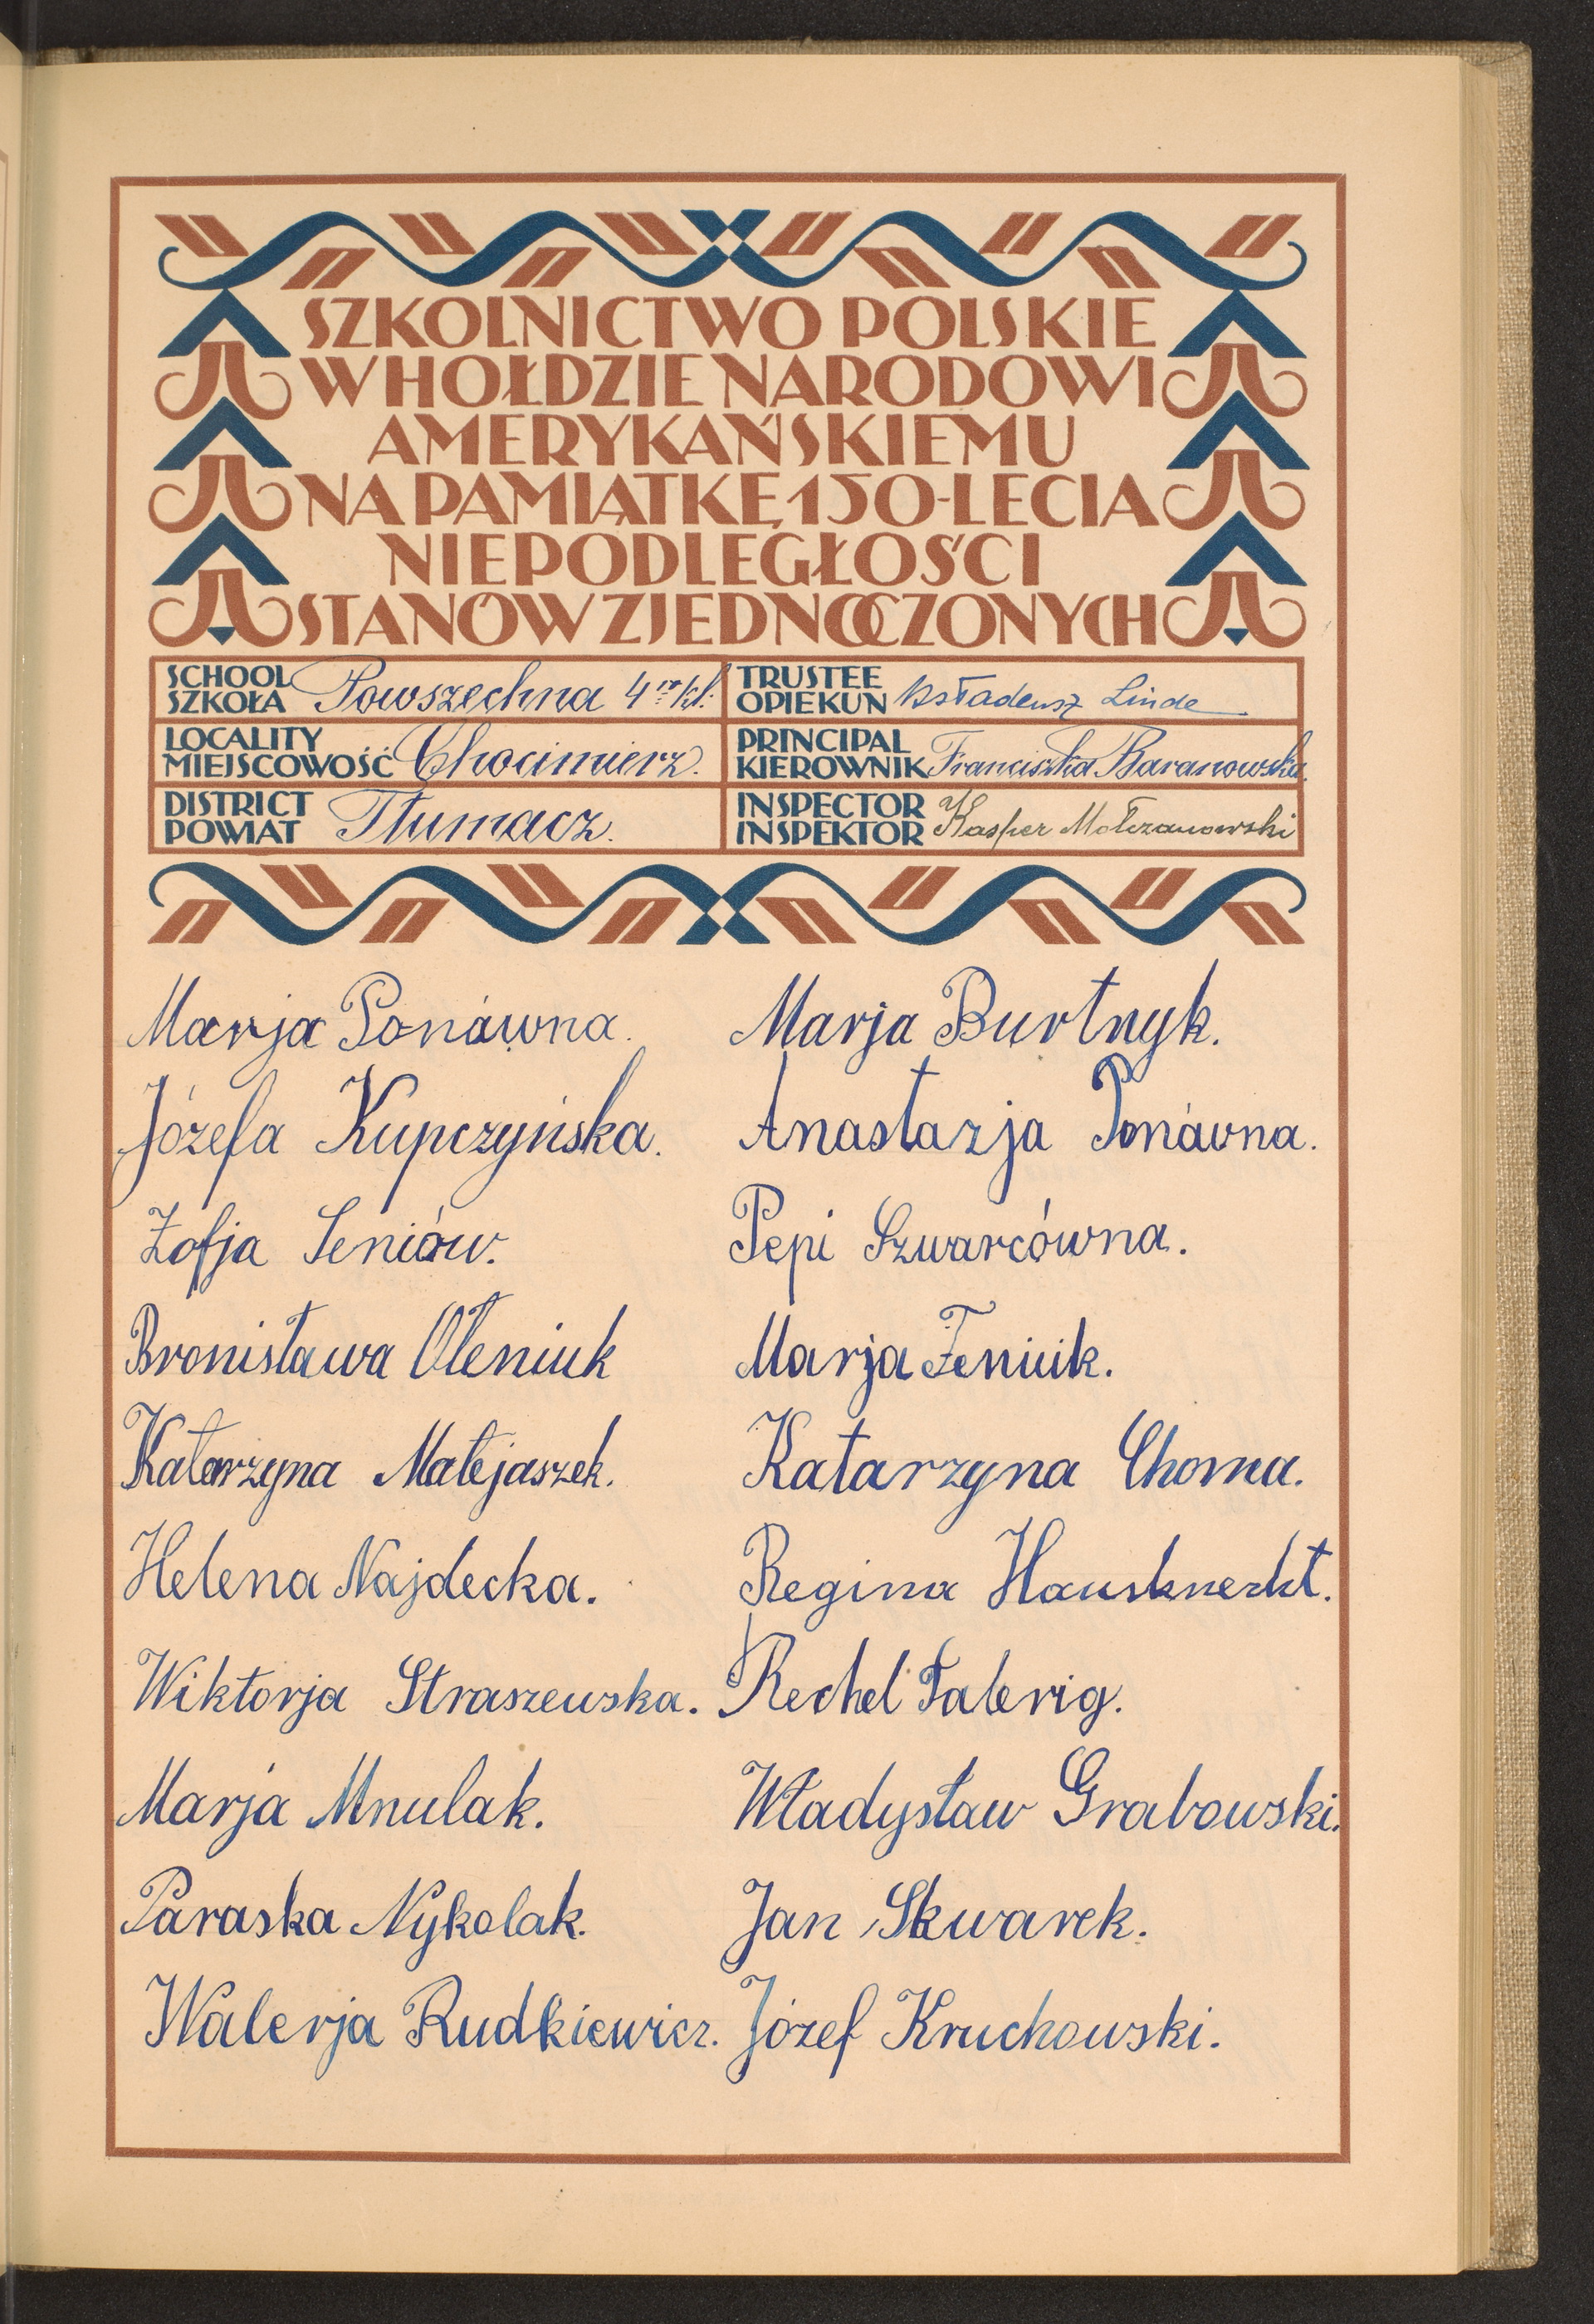 SZKOLNICTWO POLSKIE
W HOŁDZIE NARODOWI
AMERYKAŃSKIEMU
NA PAMIĄTKĘ 150-LECIA
NIEPODLEGŁOŚCI
STANÓW ZJEDNOCZONYCH
SCHOOL
SZKOŁA Powszechna 4 kl.
TRUSTEE
OPIEKUN Linde
LOCALITY
MIEJSCOWOŚĆ Chocimierz.
PRINCIPAL
KIEROWNIK Franciszka Baranowska.
DISTRICT
POWIAT Tłumacz.
INSPECTOR
INSPEKTOR Kasper Mołczanowski
Marja Ponáwna.
Józefa Kupczyńska.
Zofja Seniów.
Bronisława Oleniuk
Katarzyna Matejaszek.
Helena Najdecka.
Wiktorja Straszewska.
Marja Mnulak.
Paraska Nykolak.
Walerja Rudkiewicz.
Marja Burtnyk.
Anastazja Ponáwna.
Pepi Szwarcówna.
Marja Feniuk.
Katarzyna Choma.
Regina Hausknecht.
Rechel
Władysław Grabowski.
Jan Skwarek.
Józef Kruchowski.